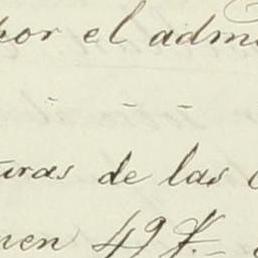 por el adm
uras de las
men 49